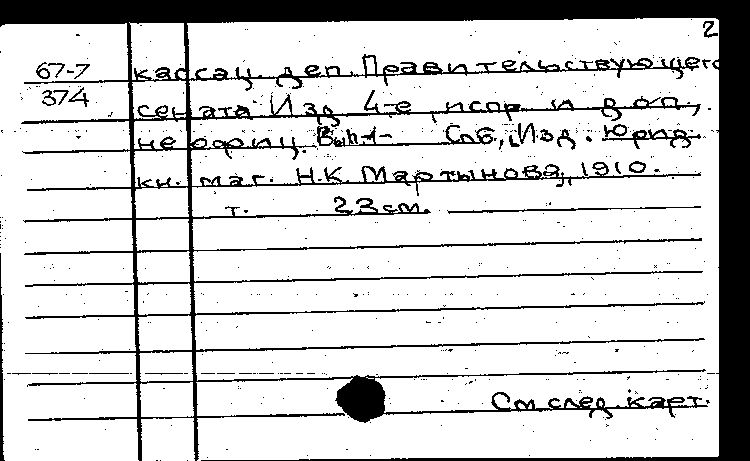 2
67-7 кассац. деп. Правительствующего
374 сената Изд 4-е, испр. и доп.,
не офиц. Вып-1- Спб., Изд. Юрид.
кн. маг. Н.К. Мартынова, 1910.
т. 23 см.
См. след. карт.